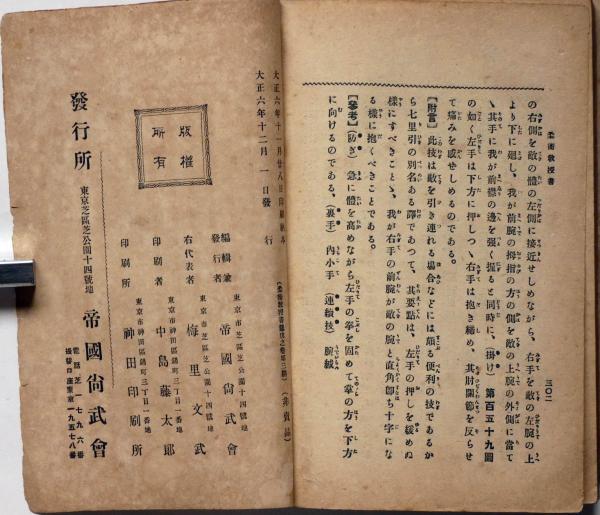 柔術教授書
三〇二
の右側を敵の體の左側に接近せしめながら、右手を敵の左腕の上
より下に廻し、我が前腕の拇指の方の側を敵の上腕の外側に當て
ゝ其手に我が前襟の邊を强く握ると同時に、(掛け)第百五十九圖
の如く左手は下方に押しつゝ右手は抱き締め、其肘關節を反らせ
て痛みを感ぜしめるのである。
【附言】此技は敵を引き連れる場合などには頗る便利の技であるか
ら七里引の別名ある譯であつて、其要點は、左手の押しを緩めぬ
樣にすべきことゝ、我が右手の前腕が敵の腕と直角卽ち十字にな
る樣に抱くべきことである。
【參考】(防ぎ)急に體を高めながら左手の拳を固めて掌の方を下方
に向けるのである、(裏手)內小手(連續技)腕緘
大正六年十一月廿八日印刷納本
大正六年十二月一日發行
(非賣品)
版權
所有
編輯兼
發行者
東京市芝區芝公園十四號地
帝國尙武會
右代表者
東京市芝區芝公園十四號地
梅里文武
印刷者
東京市神田區鍋町三丁目一番地
中島藤太郎
印刷所
東京市神田區鍋町三丁目一番地
神田印刷所
發行所
東京芝區芝公園十四號地
帝國尙武會
電話芝一七九六番
振替口座東京一九五七八番